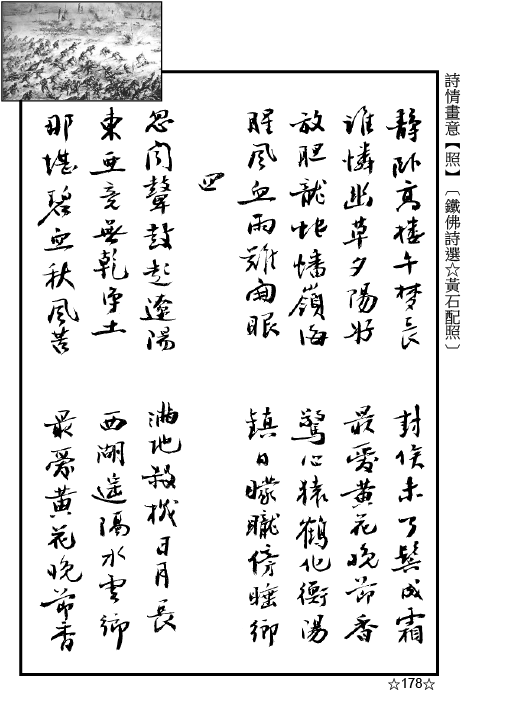 詩情畫意【照】〔鐵佛詩選☆黃石配照〕
靜臥高樓午梦長 封侯未了鬓成霜
谁憐幽草夕陽好 最愛黄花晚節香
放胆龍蛇蟠嶺海 驚心猿鶴化衡陽
腥風血雨難開眼 鎮日曚曨傍睡鄉
四
忽聞鼙鼓起遼陽 滿地殺機日月長
東亞竟無乾净土 西湖遥隔水雲鄉
那堪碧血秋風苦 最愛黄花晚節香
☆178☆